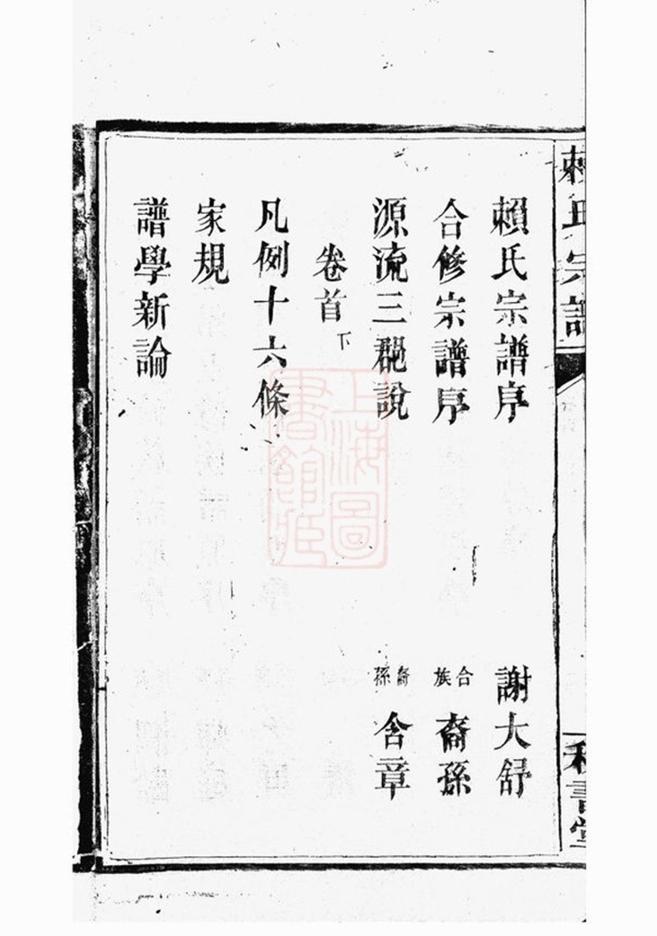 賴氏宗譜
賴氏宗譜序 謝大舒
合修宗譜序 合族裔孫
源流三郡說 裔孫含章
卷首下
凡例十六條
家規
譜學新論
上海圖書館藏